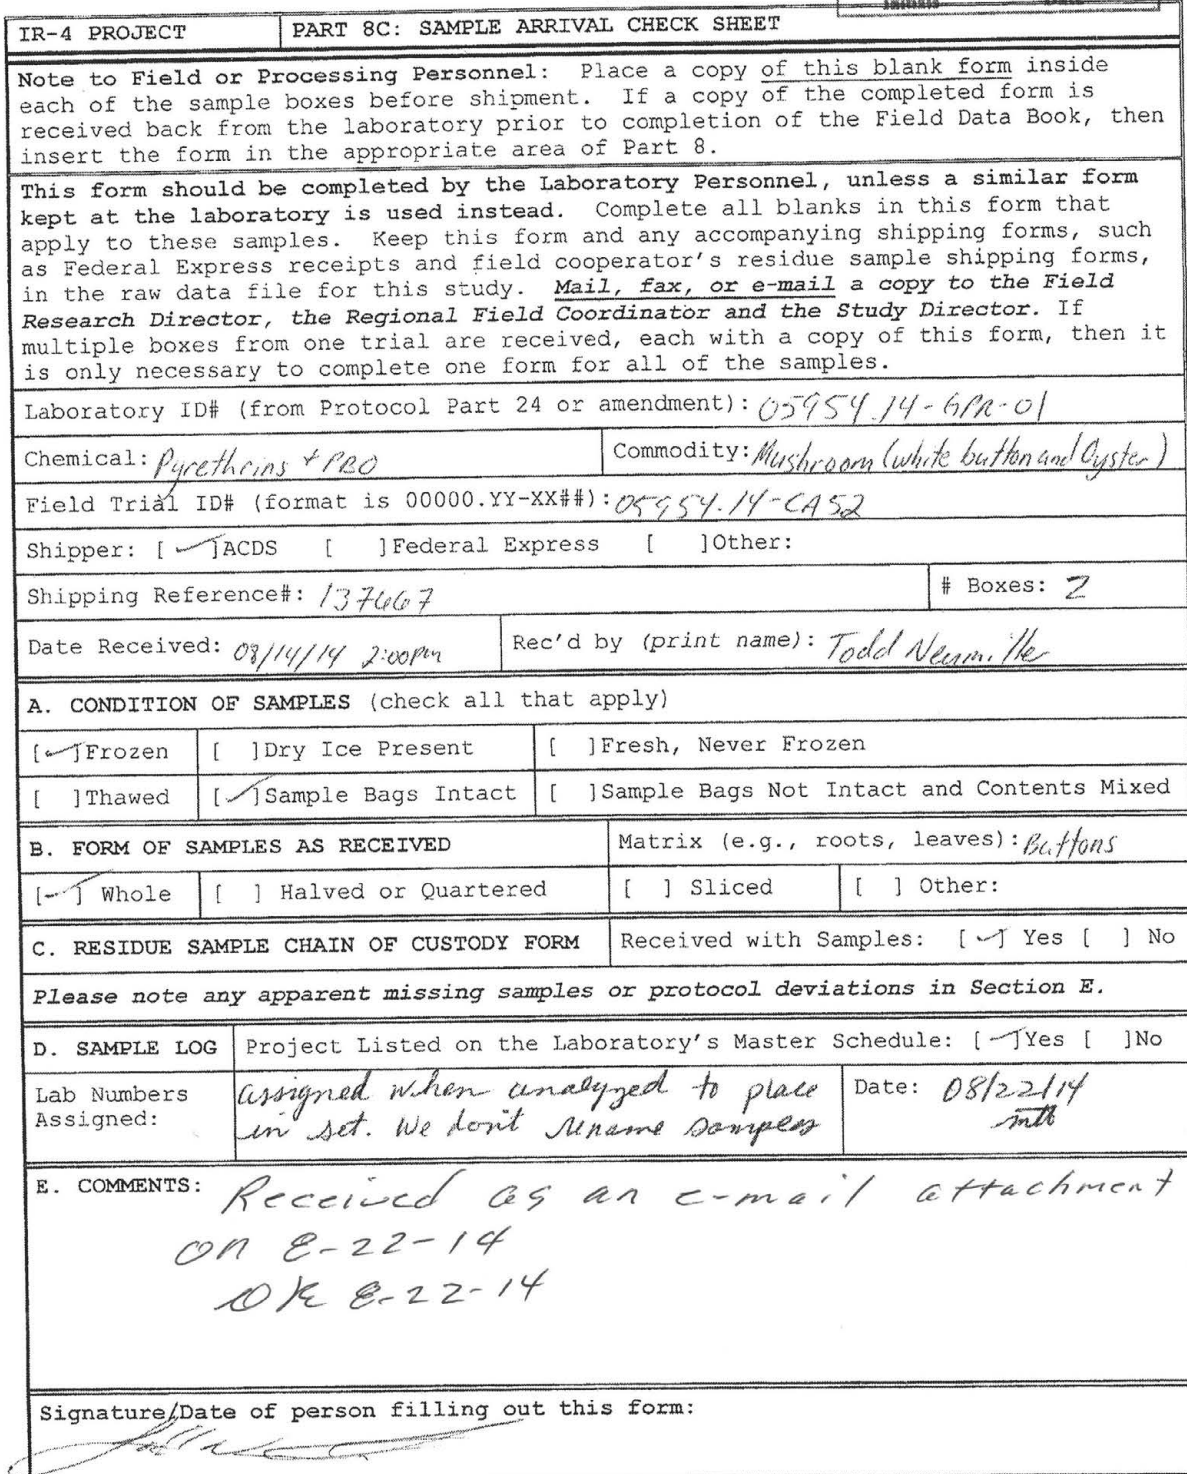 IR-4 PROJECT PART 8C: SAMPLE ARRIVAL CHECK SHEET
Note to Field or Processing Personnel: Place a copy of this blank form inside
each of the sample boxes before shipment. If a copy of the completed form is
received back from the laboratory prior to completion of the Field Data Book, then
insert the form in the appropriate area of Part 8.
This form should be completed by the Laboratory Personnel, unless a similar form
kept at the laboratory is used instead. Complete all blanks in this form that
apply to these samples. Keep this form and any accompanying shipping forms, such
as Federal Express receipts and field cooperator's residue sample shipping forms,
in the raw data file for this study. Mail, fax, or e-mail a copy to the Field
Research Director, the Regional Field Coordinator and the Study Director. If
multiple boxes from one trial are received, each with a copy of this form, then it
is only necessary to complete one form for all of the samples.
Laboratory ID# (from Protocol Part 24 or amendment): 05954.14-GPR-01
Chemical: Pyrethrins + PBO Commodity: Mushroom (white button and Oyster)
Field Trial ID# (format is 00000.YY-XX##): 05954.14-CA52
Shipper: [✓]ACDS [ ]Federal Express [ ]Other:
Shipping Reference#: 137667 # Boxes: 2
Date Received: 08/14/14 2:00pm Rec'd by (print name): Todd Neumiller
A. CONDITION OF SAMPLES (check all that apply)
[✓]Frozen [ ]Dry Ice Present [ ]Fresh, Never Frozen
[ ]Thawed [✓]Sample Bags Intact [ ]Sample Bags Not Intact and Contents Mixed
B. FORM OF SAMPLES AS RECEIVED Matrix (e.g., roots, leaves): Buttons
[✓] Whole [ ] Halved or Quartered [ ] Sliced [ ] Other:
C. RESIDUE SAMPLE CHAIN OF CUSTODY FORM Received with Samples: [✓] Yes [ ] No
Please note any apparent missing samples or protocol deviations in Section E.
D. SAMPLE LOG Project Listed on the Laboratory's Master Schedule: [✓]Yes [ ]No
Lab Numbers Assigned: assigned when analyzed to place Date: 08/22/14
in set. We don't rename samples
E. COMMENTS: Received as an e-mail attachment
on 8-22-14
8-22-14
Signature/Date of person filling out this form: